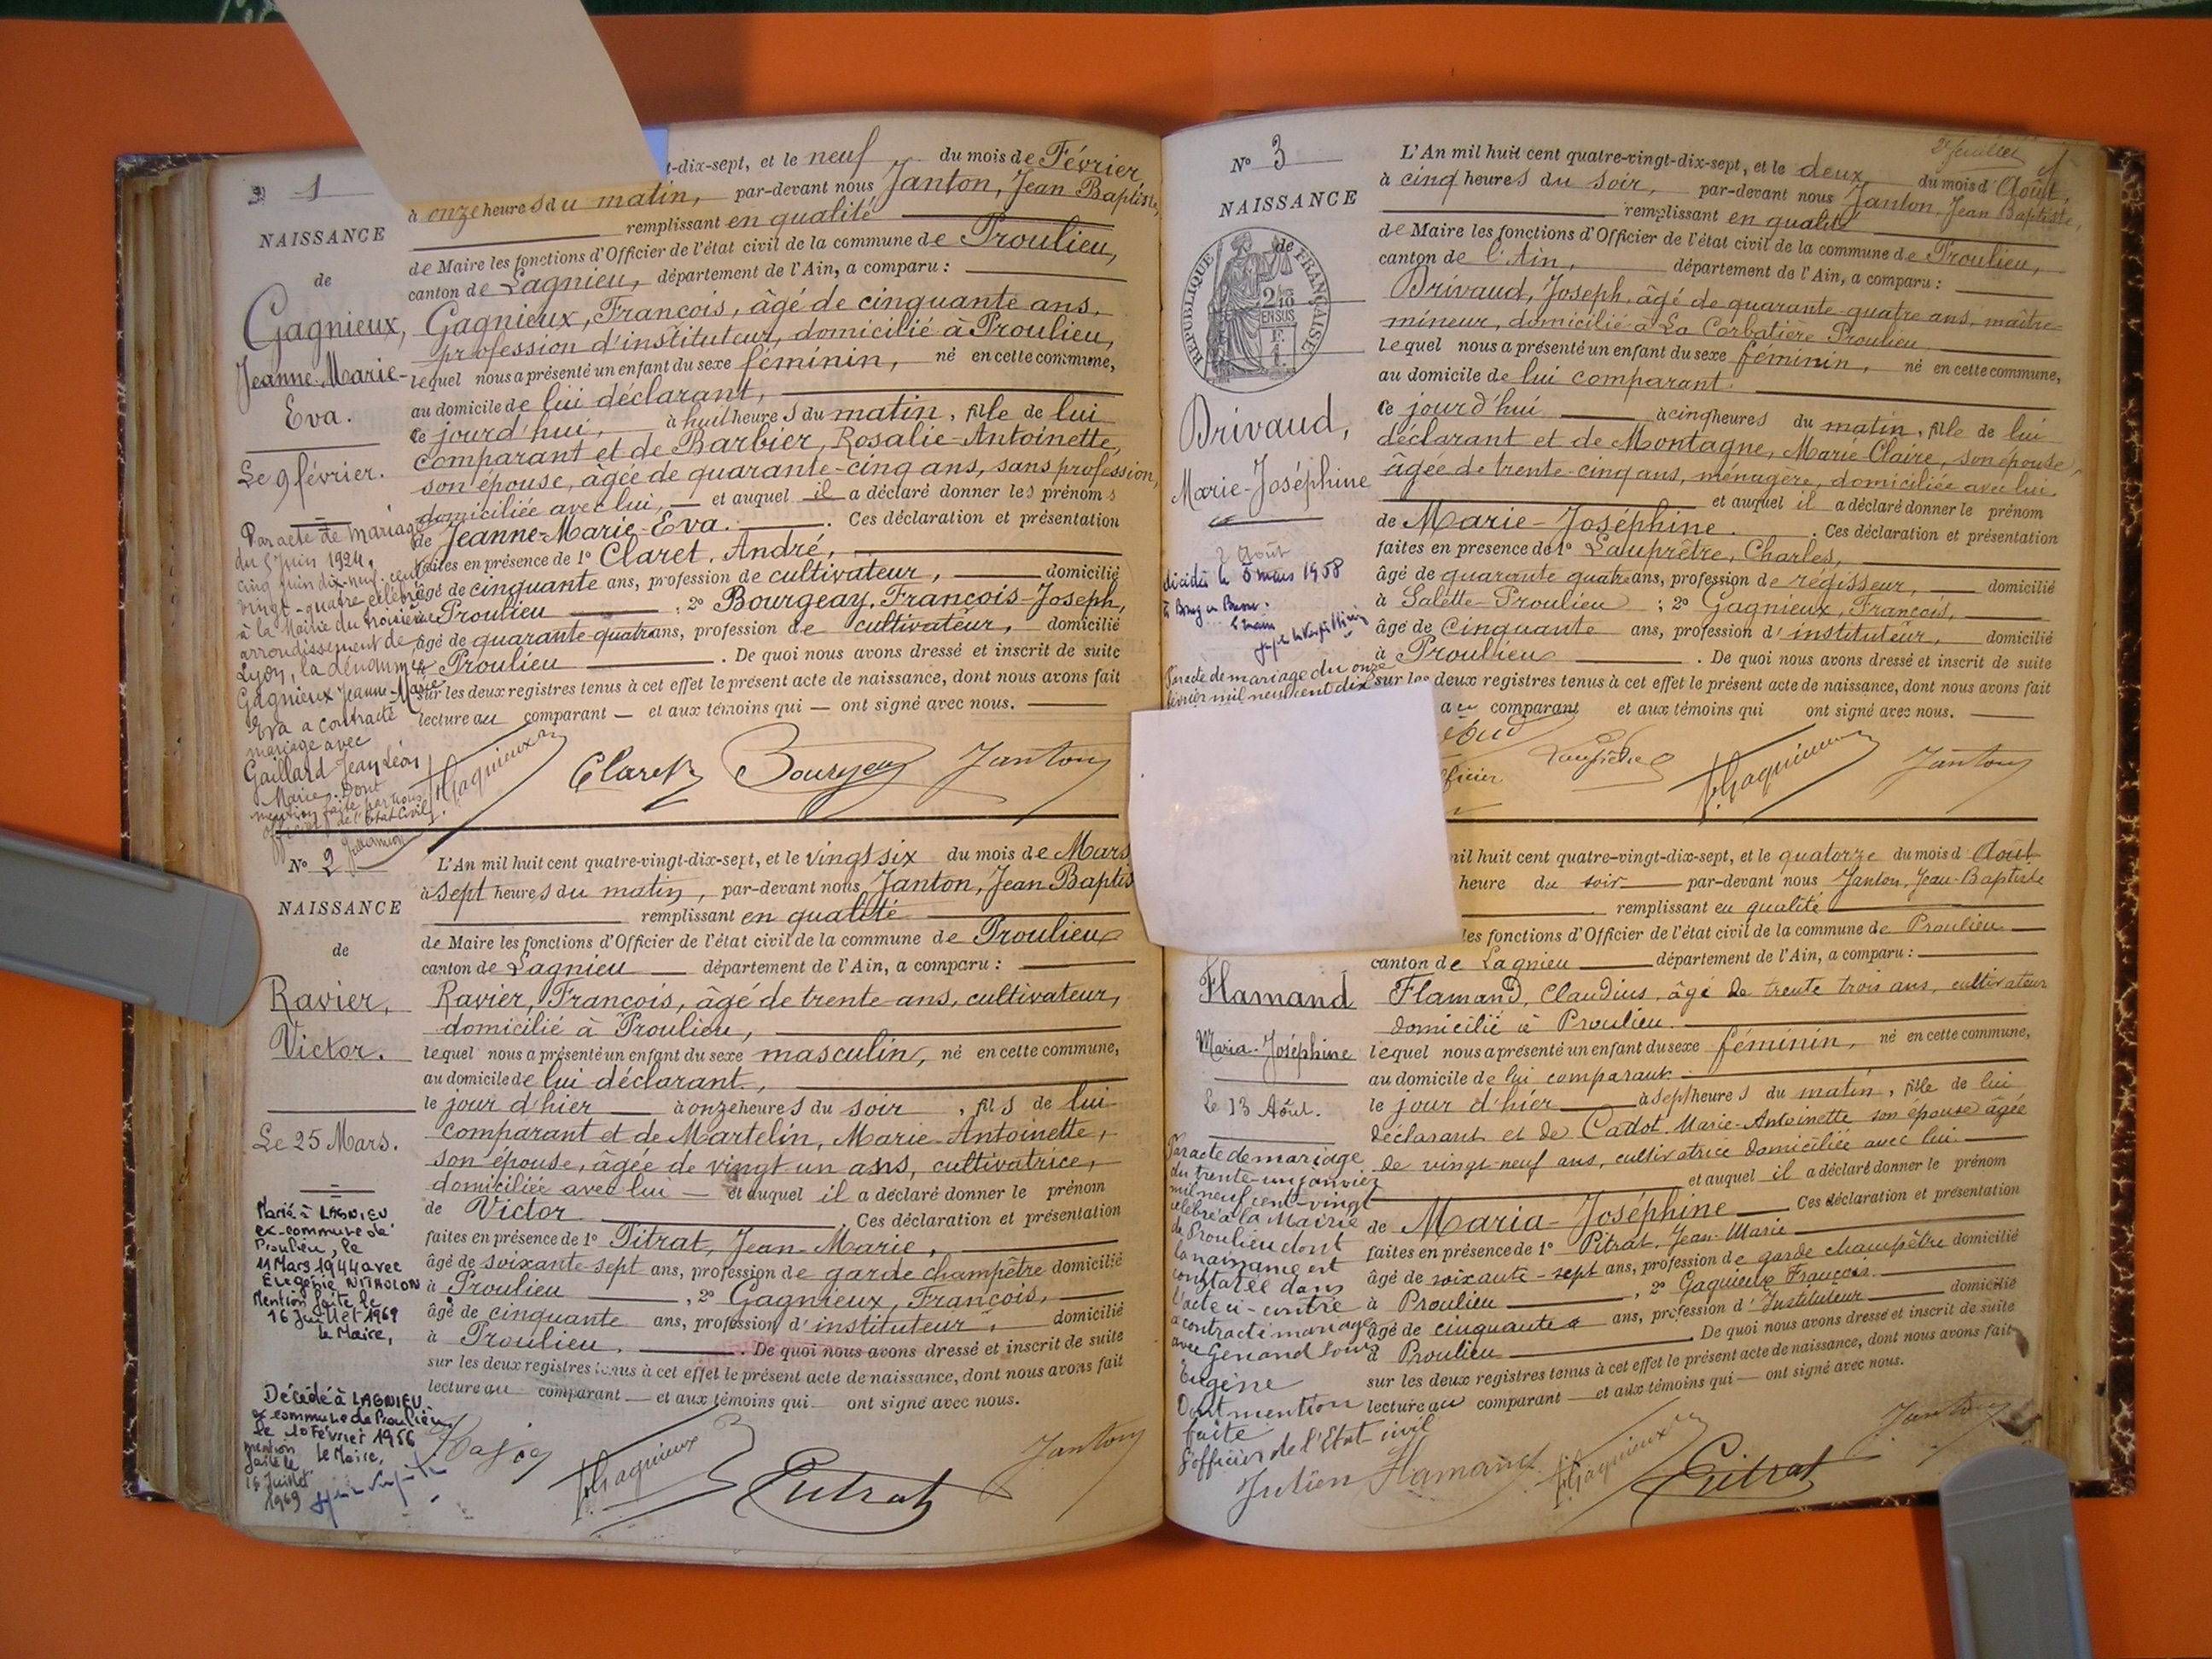 1
NAISSANCE
de
Gagnieux,
Jeanne-Marie-
Eva.
Le 9 février.
Par acte de mariage
du 5 Juin 1924,
cinq juin dix-neuf cent
vingt-quatre célébré
à la Mairie du troisième
arrondissement de
Lyon, la dénommée
Gagnieux Jeanne-Marie
Eva a contracté
mariage avec
Gaillard Jean Léon
Marie. Dont
mention faite par nous
officier de l'Etat Civil
t-dix-sept, et le neuf du mois de Février
à onze heures du matin, par-devant nous Janton, Jean Baptiste,
remplissant en qualité
de Maire les fonctions d'Officier de l'état civil de la commune de Proulieu,
canton de Lagnieu, département de l'Ain, a comparu :
Gagnieux, François, âgé de cinquante ans,
profession d'instituteur, domicilié à Proulieu,
lequel nous a présenté un enfant du sexe féminin, né en cette commune,
au domicile de lui déclarant,
ce jourd'hui, à huit heures du matin, fille de lui
comparant et de Barbier, Rosalie-Antoinette,
son épouse, âgée de quarante-cinq ans, sans profession,
domiciliée avec lui, et auquel il a déclaré donner les prénoms
de Jeanne-Marie-Eva. Ces déclaration et présentation
faites en présence de 1º Claret, André,
âgé de cinquante ans, profession de cultivateur, domicilié
à Proulieu, 2º Bourgeay, François-Joseph,
âgé de quarante quatre ans, profession de cultivateur, domicilié
à Proulieu. De quoi nous avons dressé et inscrit de suite
sur les deux registres tenus à cet effet le présent acte de naissance, dont nous avons fait
lecture au comparant et aux témoins qui ont signé avec nous.
F. Gagnieux Claret Bourgeay Janton
Nº 2
NAISSANCE
de
Ravier,
Victor.
Le 25 Mars.
Marié à LAGNIEU
ex-commune de
Proulieu, le
11 Mars 1944 avec
Eugénie NITHOLON
Mention faite le
16 Juillet 1969
le Maire,
Décédé à LAGNIEU
ex commune de Proulieu
le 10 Février 1956
mention
faite le Le Maire,
16 Juillet
1969
L'An mil huit cent quatre-vingt-dix-sept, et le vingt six du mois de Mars
à sept heures du matin, par-devant nous Janton, Jean Baptis
remplissant en qualité
de Maire les fonctions d'Officier de l'état civil de la commune de Proulieu
canton de Lagnieu département de l'Ain, a comparu :
Ravier, François, âgé de trente ans, cultivateur,
domicilié à Proulieu,
lequel nous a présenté un enfant du sexe masculin, né en cette commune,
au domicile de lui déclarant,
le jour d'hier à onze heures du soir, fils de lui-
comparant et de Martelin, Marie-Antoinette,
son épouse, âgée de vingt un ans, cultivatrice,
domiciliée avec lui et auquel il a déclaré donner le prénom
de Victor. Ces déclaration et présentation
faites en présence de 1º Pitrat, Jean-Marie,
âgé de soixante-sept ans, profession de garde champêtre domicilié
à Proulieu, 2º Gagnieux, François,
âgé de cinquante ans, profession d'instituteur, domicilié
à Proulieu. De quoi nous avons dressé et inscrit de suite
sur les deux registres tenus à cet effet le présent acte de naissance, dont nous avons fait
lecture au comparant et aux témoins qui ont signé avec nous.
F. Gagnieux Pitrat Janton
2e feuillet
Nº 3
NAISSANCE
de
RÉPUBLIQUE FRANÇAISE
Brivaud,
Marie-Joséphine
2 Août
décédée le 5 mars 1958
à Bourg en Bresse.
Par acte de mariage du onze
février mil neuf cent dix
L'An mil huit cent quatre-vingt-dix-sept, et le deux du mois d'Août,
à cinq heures du soir, par-devant nous Janton, Jean Baptiste,
remplissant en qualité
de Maire les fonctions d'Officier de l'état civil de la commune de Proulieu,
canton de l'Ain, département de l'Ain, a comparu :
Brivaud, Joseph, âgé de quarante-quatre ans, maître-
mineur, domicilié à La Corbatière Proulieu
lequel nous a présenté un enfant du sexe féminin, né en cette commune,
au domicile de lui comparant.
ce jourd'hui à cinq heures du matin, fille de lui
déclarant et de Montagne, Marie-Claire, son épouse,
âgée de trente-cinq ans, ménagère, domiciliée avec lui.
et auquel il a déclaré donner le prénom
de Marie-Joséphine. Ces déclaration et présentation
faites en présence de 1º Lauprêtre, Charles,
âgé de quarante quatre ans, profession de régisseur, domicilié
à Salette-Proulieu ; 2º Gagnieux, François,
âgé de cinquante ans, profession d'instituteur, domicilié
à Proulieu. De quoi nous avons dressé et inscrit de suite
sur les deux registres tenus à cet effet le présent acte de naissance, dont nous avons fait
au comparant et aux témoins qui ont signé avec nous.
fficier Lauprêtre F. Gagnieux Janton
Flamand
Maria-Joséphine
Le 13 Août.
Par acte de mariage
du trente-un janvier
mil neuf cent-vingt
célébré à la Mairie
de Proulieu dont
la naissance est
constatée dans
l'acte ci-contre
a contracté mariage
avec Genand Louis
Eugène
Dont mention
faite
L'officier de l'Etat civil
mil huit cent quatre-vingt-dix-sept, et le quatorze du mois d'Août
heure du soir par-devant nous Janton, Jean-Baptiste
remplissant en qualité
les fonctions d'Officier de l'état civil de la commune de Proulieu
canton de Lagnieu département de l'Ain, a comparu :
Flamand, Claudius, âgé de trente trois ans, cultivateur
domicilié à Proulieu.
lequel nous a présenté un enfant du sexe féminin, né en cette commune,
au domicile de lui comparant
le jour d'hier à sept heures du matin, fille de lui
déclarant et de Cadot, Marie-Antoinette son épouse âgée
de vingt-neuf ans, cultivatrice domiciliée avec lui.
et auquel il a déclaré donner le prénom
de Maria-Joséphine Ces déclaration et présentation
faites en présence de 1º Pitrat, Jean-Marie
âgé de soixante-sept ans, profession de garde champêtre domicilié
à Proulieu, 2º Gagnieux François.
âgé de cinquante ans, profession d'Instituteur domicilié
à Proulieu. De quoi nous avons dressé et inscrit de suite
sur les deux registres tenus à cet effet le présent acte de naissance, dont nous avons fait
lecture au comparant et aux témoins qui ont signé avec nous.
Julien Flamand F. Gagnieux Pitrat Janton